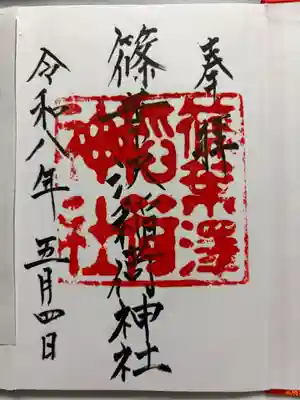 奉拝
篠葉沢稲荷神社
令和八年 五月四日
篠葉澤
稲荷
神社